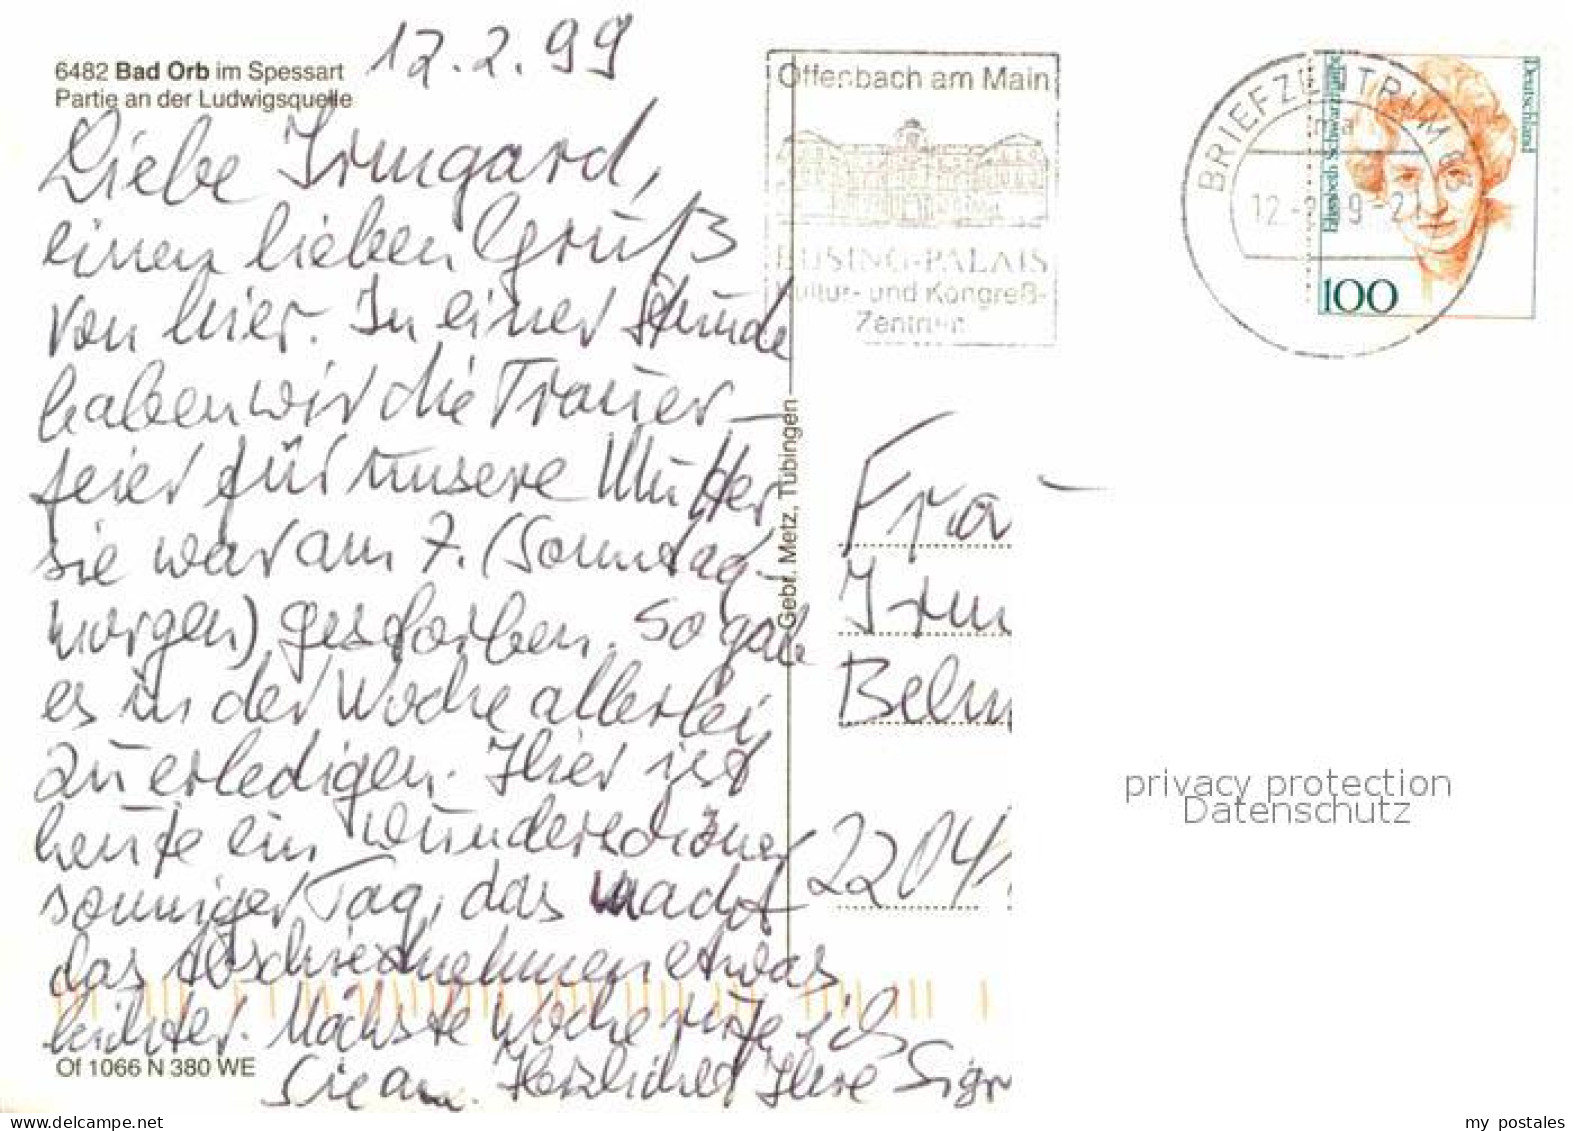 6482 Bad Orb im Spessart
Partie an der Ludwigsquelle
12.2.99
Liebe Irmgard,
einen lieben Gruß
von hier. In einer Stunde
haben wir die Trauer-
feier für unsere Mutter
sie war am 7. (Sonntag-
morgen) gestorben. So gab
es in der Woche allerlei
zu erledigen. Hier ist
heute ein wunderschöner
sonniger Tag, das macht
das Abschiednehmen etwas
leichter. Nächste Woche rufe ich
Sie an. Herzlichst Ihre Sigr
Of 1066 N 380 WE
Gebr. Metz, Tübingen
Offenbach am Main
BÜSING-PALAIS
Kultur- und Kongreß-
Zentrum
BRIEFZENTRUM 63
12.-2.99-21
Deutschland
Elisabeth Schwarzhaupt
100
Fra
Irm
Belm
22041
privacy protection
Datenschutz
www.delcampe.net
my_postales